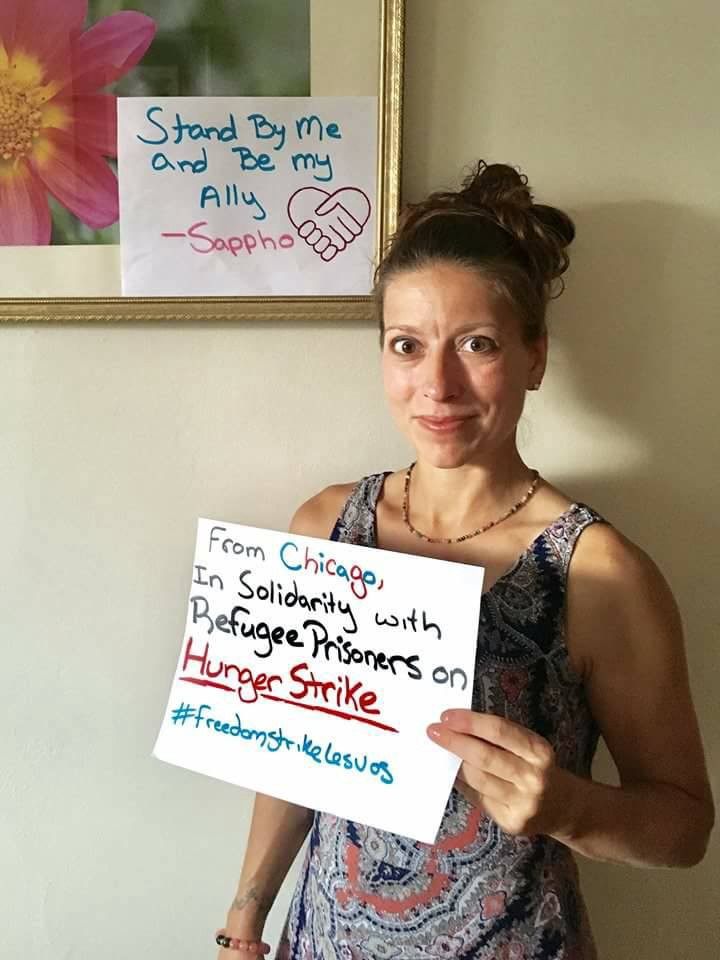 Stand By Me
and Be my
Ally
-Sappho
From Chicago,
In Solidarity with
Refugee Prisoners on
Hunger Strike
#freedomstrikelesvos